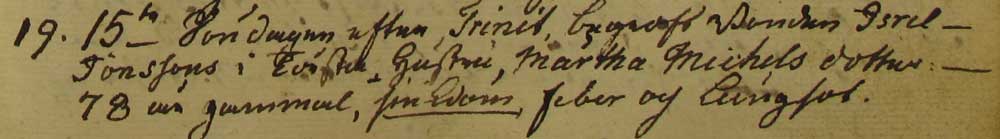 19. 15de Söndagen efter Trinit. begrofs Bonden Isrel
Jönssons i Hustru, Martha Michels dotter.
78 år gammal, sin sjukdom, feber och Lungsot.